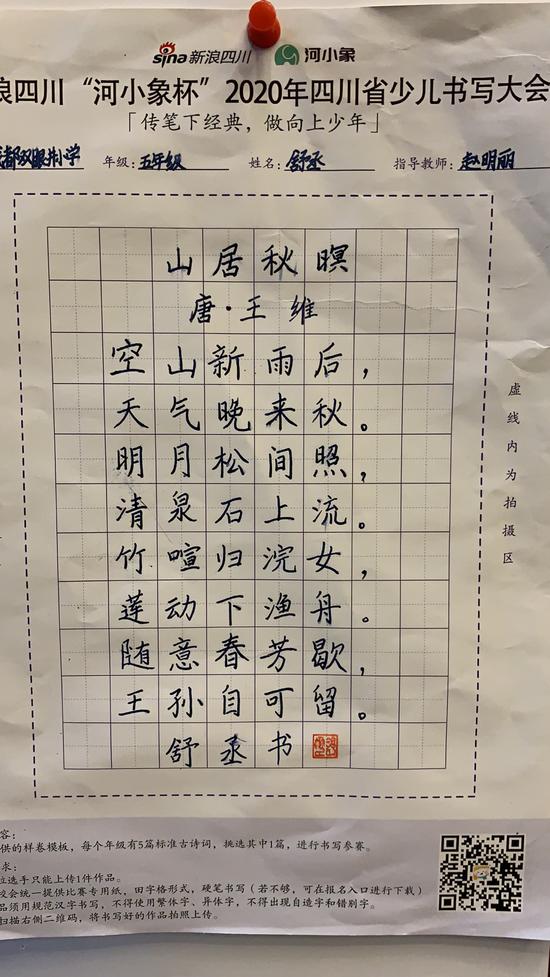 sina 新浪四川 河小象
浪四川“河小象杯”2020年四川省少儿书写大会
「传笔下经典，做向上少年」
年级：五年级 姓名：舒丞 指导教师：赵明丽
山居秋暝
唐·王维
空山新雨后，
天气晚来秋。
明月松间照，
清泉石上流。
竹喧归浣女，
莲动下渔舟。
随意春芳歇，
王孙自可留。
舒丞书
虚线内为拍摄区
容：
供的样卷模板，每个年级有5篇标准古诗词，挑选其中1篇，进行书写参赛。
求：
位选手只能上传1件作品。
校会统一提供比赛专用纸，田字格形式，硬笔书写（若不够，可在报名入口进行下载）
品须用规范汉字书写，不得使用繁体字、异体字，不得出现自造字和错别字。
扫描右侧二维码，将书写好的作品拍照上传。